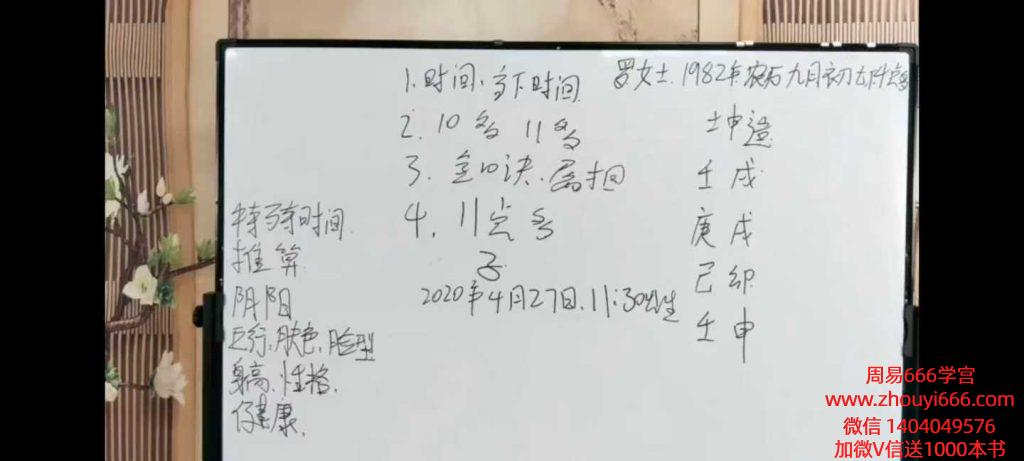 1. 时间、当下时间
2. 10多 11多
3. 金口诀、属相
4. 11点多
子
2020年4月27日、11:30出生
特殊时间
推算
阴阳
五行:肤色、脸型
身高、性格、
健康、
罗女士、1982年农历九月初
坤造
壬戌
庚戌
己卯
壬申
周易666学宫
www.zhouyi666.com
微信 1404049576
加微V信送1000本书